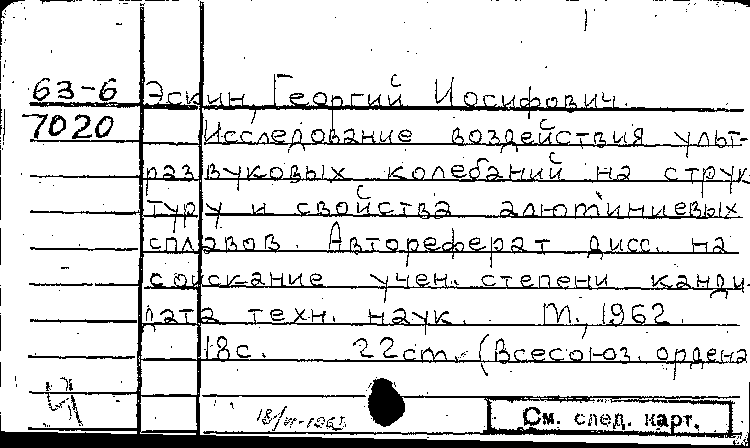 63-6 Эскин, Георгий Иосифович.
7020 Исследование воздействия ульт-
развуковых колебаний на струк
туру и свойства алюминиевых
сплавов. Автореферат дисс. на
соискание учен. степени канди-
дата техн. наук. М., 1962.
18с. 22см. (Всесоюз. ордена
См. след. карт.